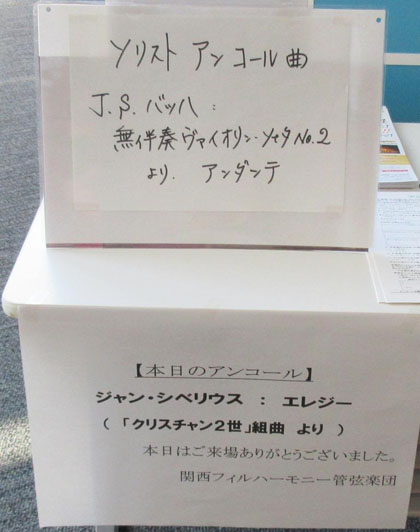 ソリスト アンコール曲
J.S.バッハ:
無伴奏ヴァイオリン・ソナタNo.2
より. アンダンテ
【本日のアンコール】
ジャン・シベリウス : エレジー
(「クリスチャン2世」組曲 より )
本日はご来場ありがとうございました。
関西フィルハーモニー管弦楽団